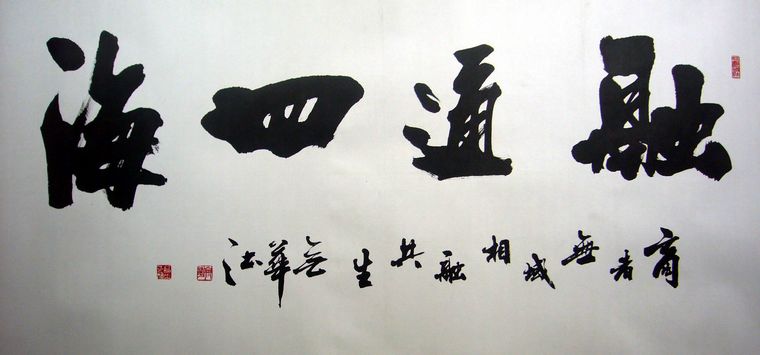 融通四海
商者無域相融共生 華